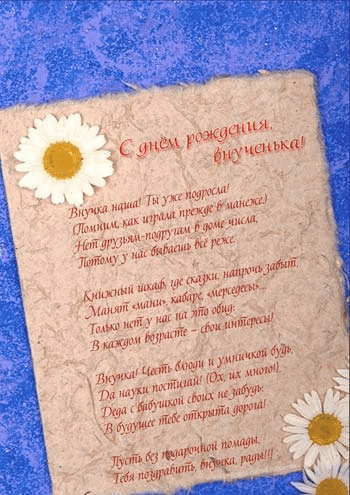 С днём рождения,
внученька!
Внучка наша! Ты уже подросла!
(Помним, как играла прежде в манеже.)
Нет друзьям-подругам в доме числа,
Потому у нас бываешь всё реже.
Книжный шкаф, где сказки, напрочь забыт,
Манят «мани», кабаре, «мерседесы»...
Только нет у нас на это обид:
В каждом возрасте – свои интересы!
Внучка! Честь блюди и умничкой будь,
Да науки постигай! (Ох, их много!).
Деда с бабушкой своих не забудь:
В будущее тебе открыта дорога!
Пусть без подарочной помады,
Тебя поздравить, внучка, рады!!!